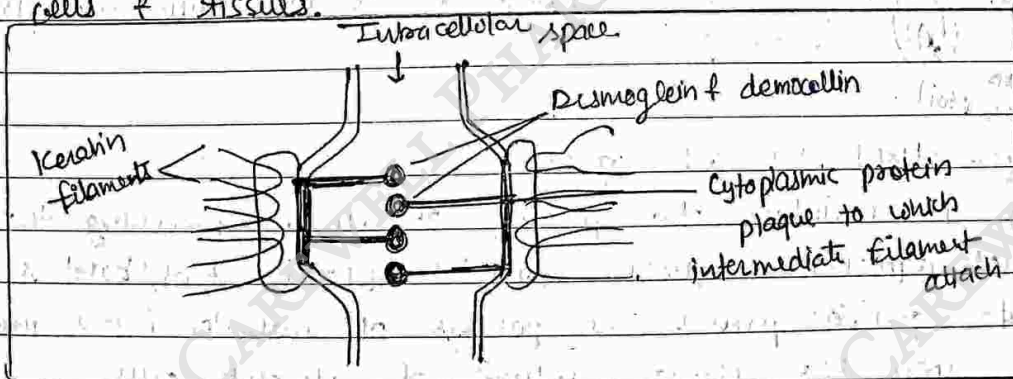 cells & tissues.
Intracellular space
Desmoglein & democollin
Keratin
filaments
Cytoplasmic protein
plaque to which
intermediate filament
attach